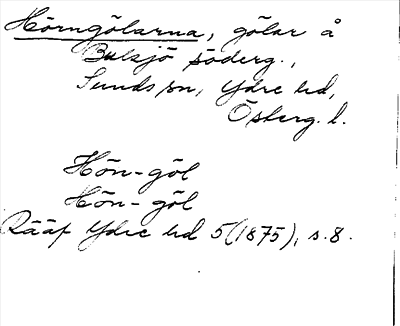 Hörngölarna, gölar å
Bulsjö söderg.,
Sunds sn, Ydre hd,
Österg. l.
Hön-göl
Hön-göl
Rääf Ydre hd 5 (1875), s. 8.